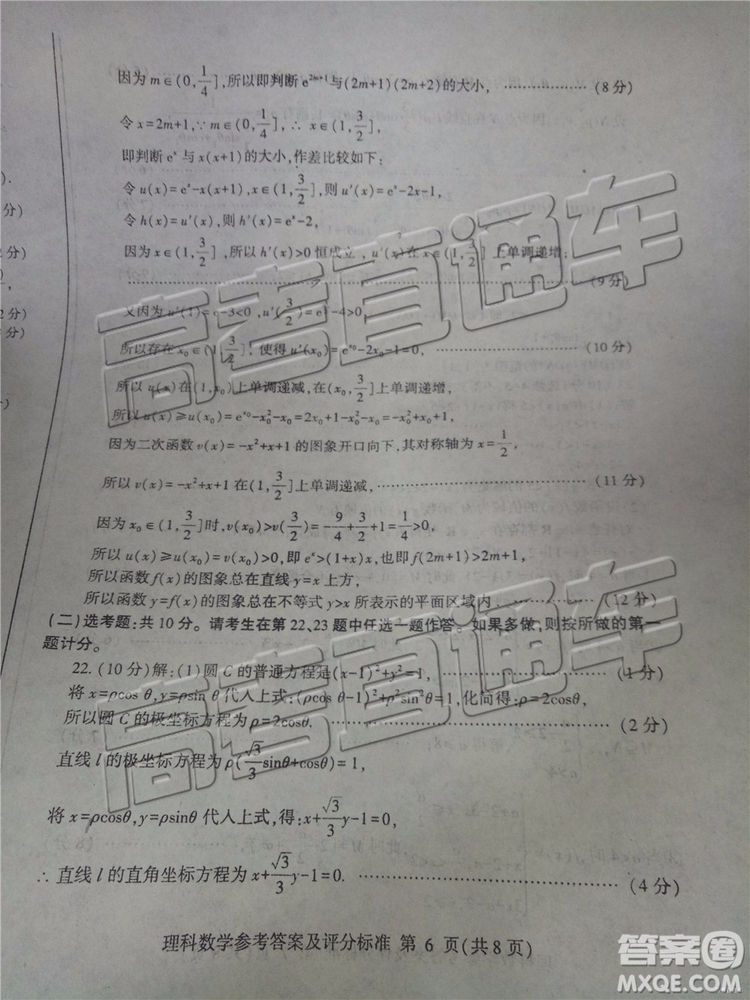 因为 m∈(0,1/4],所以即判断 e^{2m+1}与(2m+1)(2m+2)的大小, ……………… (8 分)
令 x=2m+1,∵ m∈(0,1/4],∴ x∈(1,3/2],
即判断 e^x 与 x(x+1)的大小,作差比较如下:
令 u(x)=e^x-x(x+1),x∈(1,3/2],则 u′(x)=e^x-2x-1,
令 h(x)=u′(x),则 h′(x)=e^x-2,
因为 x∈(1,3/2],所以 h′(x)>0 恒成立,u′(x)在 x∈(1,3/2] 上单调递增;
……………… (9 分)
又因为 u′(1)=e-3<0,u′(3/2)=e^{3/2}-4>0,
所以存在 x₀∈(1,3/2],使得 u′(x₀)=e^{x₀}-2x₀-1=0, ……………… (10 分)
所以 u(x)在(1,x₀)上单调递减,在(x₀,3/2]上单调递增,
所以 u(x)≥u(x₀)=e^{x₀}-x₀²-x₀=2x₀+1-x₀²-x₀=-x₀²+x₀+1,
因为二次函数 v(x)=-x²+x+1 的图象开口向下,其对称轴为 x=1/2,
所以 v(x)=-x²+x+1 在(1,3/2]上单调递减, ……………… (11 分)
因为 x₀∈(1,3/2]时,v(x₀)>v(3/2)=-9/4+3/2+1=1/4>0,
所以 u(x)≥u(x₀)=v(x₀)>0,即 e^x>(1+x)x,也即 f(2m+1)>2m+1,
所以函数 f(x)的图象总在直线 y=x 上方,
所以函数 y=f(x)的图象总在不等式 y>x 所表示的平面区域内. ……………… (12 分)
(二)选考题:共 10 分。请考生在第 22、23 题中任选一题作答。如果多做,则按所做的第一
题计分。
22.(10 分)解:(1)圆 C 的普通方程是(x-1)²+y²=1, ……………… (1 分)
将 x=ρcos θ,y=ρsin θ 代入上式:(ρcos θ-1)²+ρ²sin²θ=1,化简得:ρ=2cosθ,
所以圆 C 的极坐标方程为 ρ=2cosθ. ……………… (2 分)
直线 l 的极坐标方程为 ρ(√3/3 sinθ+cosθ)=1,
将 x=ρcosθ,y=ρsinθ 代入上式,得:x+√3/3 y-1=0,
∴ 直线 l 的直角坐标方程为 x+√3/3 y-1=0. ……………… (4 分)
理科数学参考答案及评分标准 第 6 页(共 8 页)
高考直通车
高考直通车
答案卷
MXQE.COM